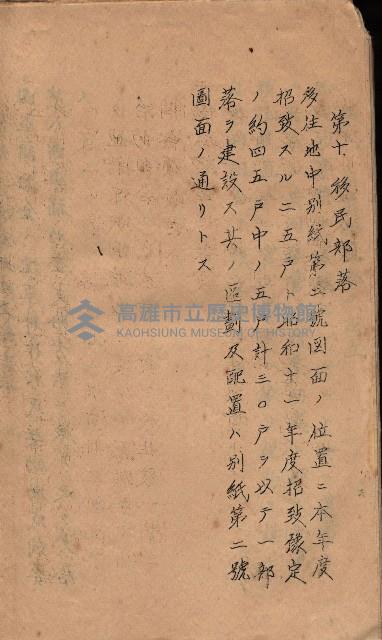 第十、移民部落
移住地中別紙第二號図面ノ位置ニ本年度
招致スル二五戸ト昭和十一年度招致豫定
ノ約四五戸中ノ五戸計三〇戸ヲ以テ一部
落ヲ建設ス其ノ區劃及配置ハ別紙第二號
圖面ノ通リトス
高雄市立歷史博物館
KAOHSIUNG MUSEUM OF HISTORY